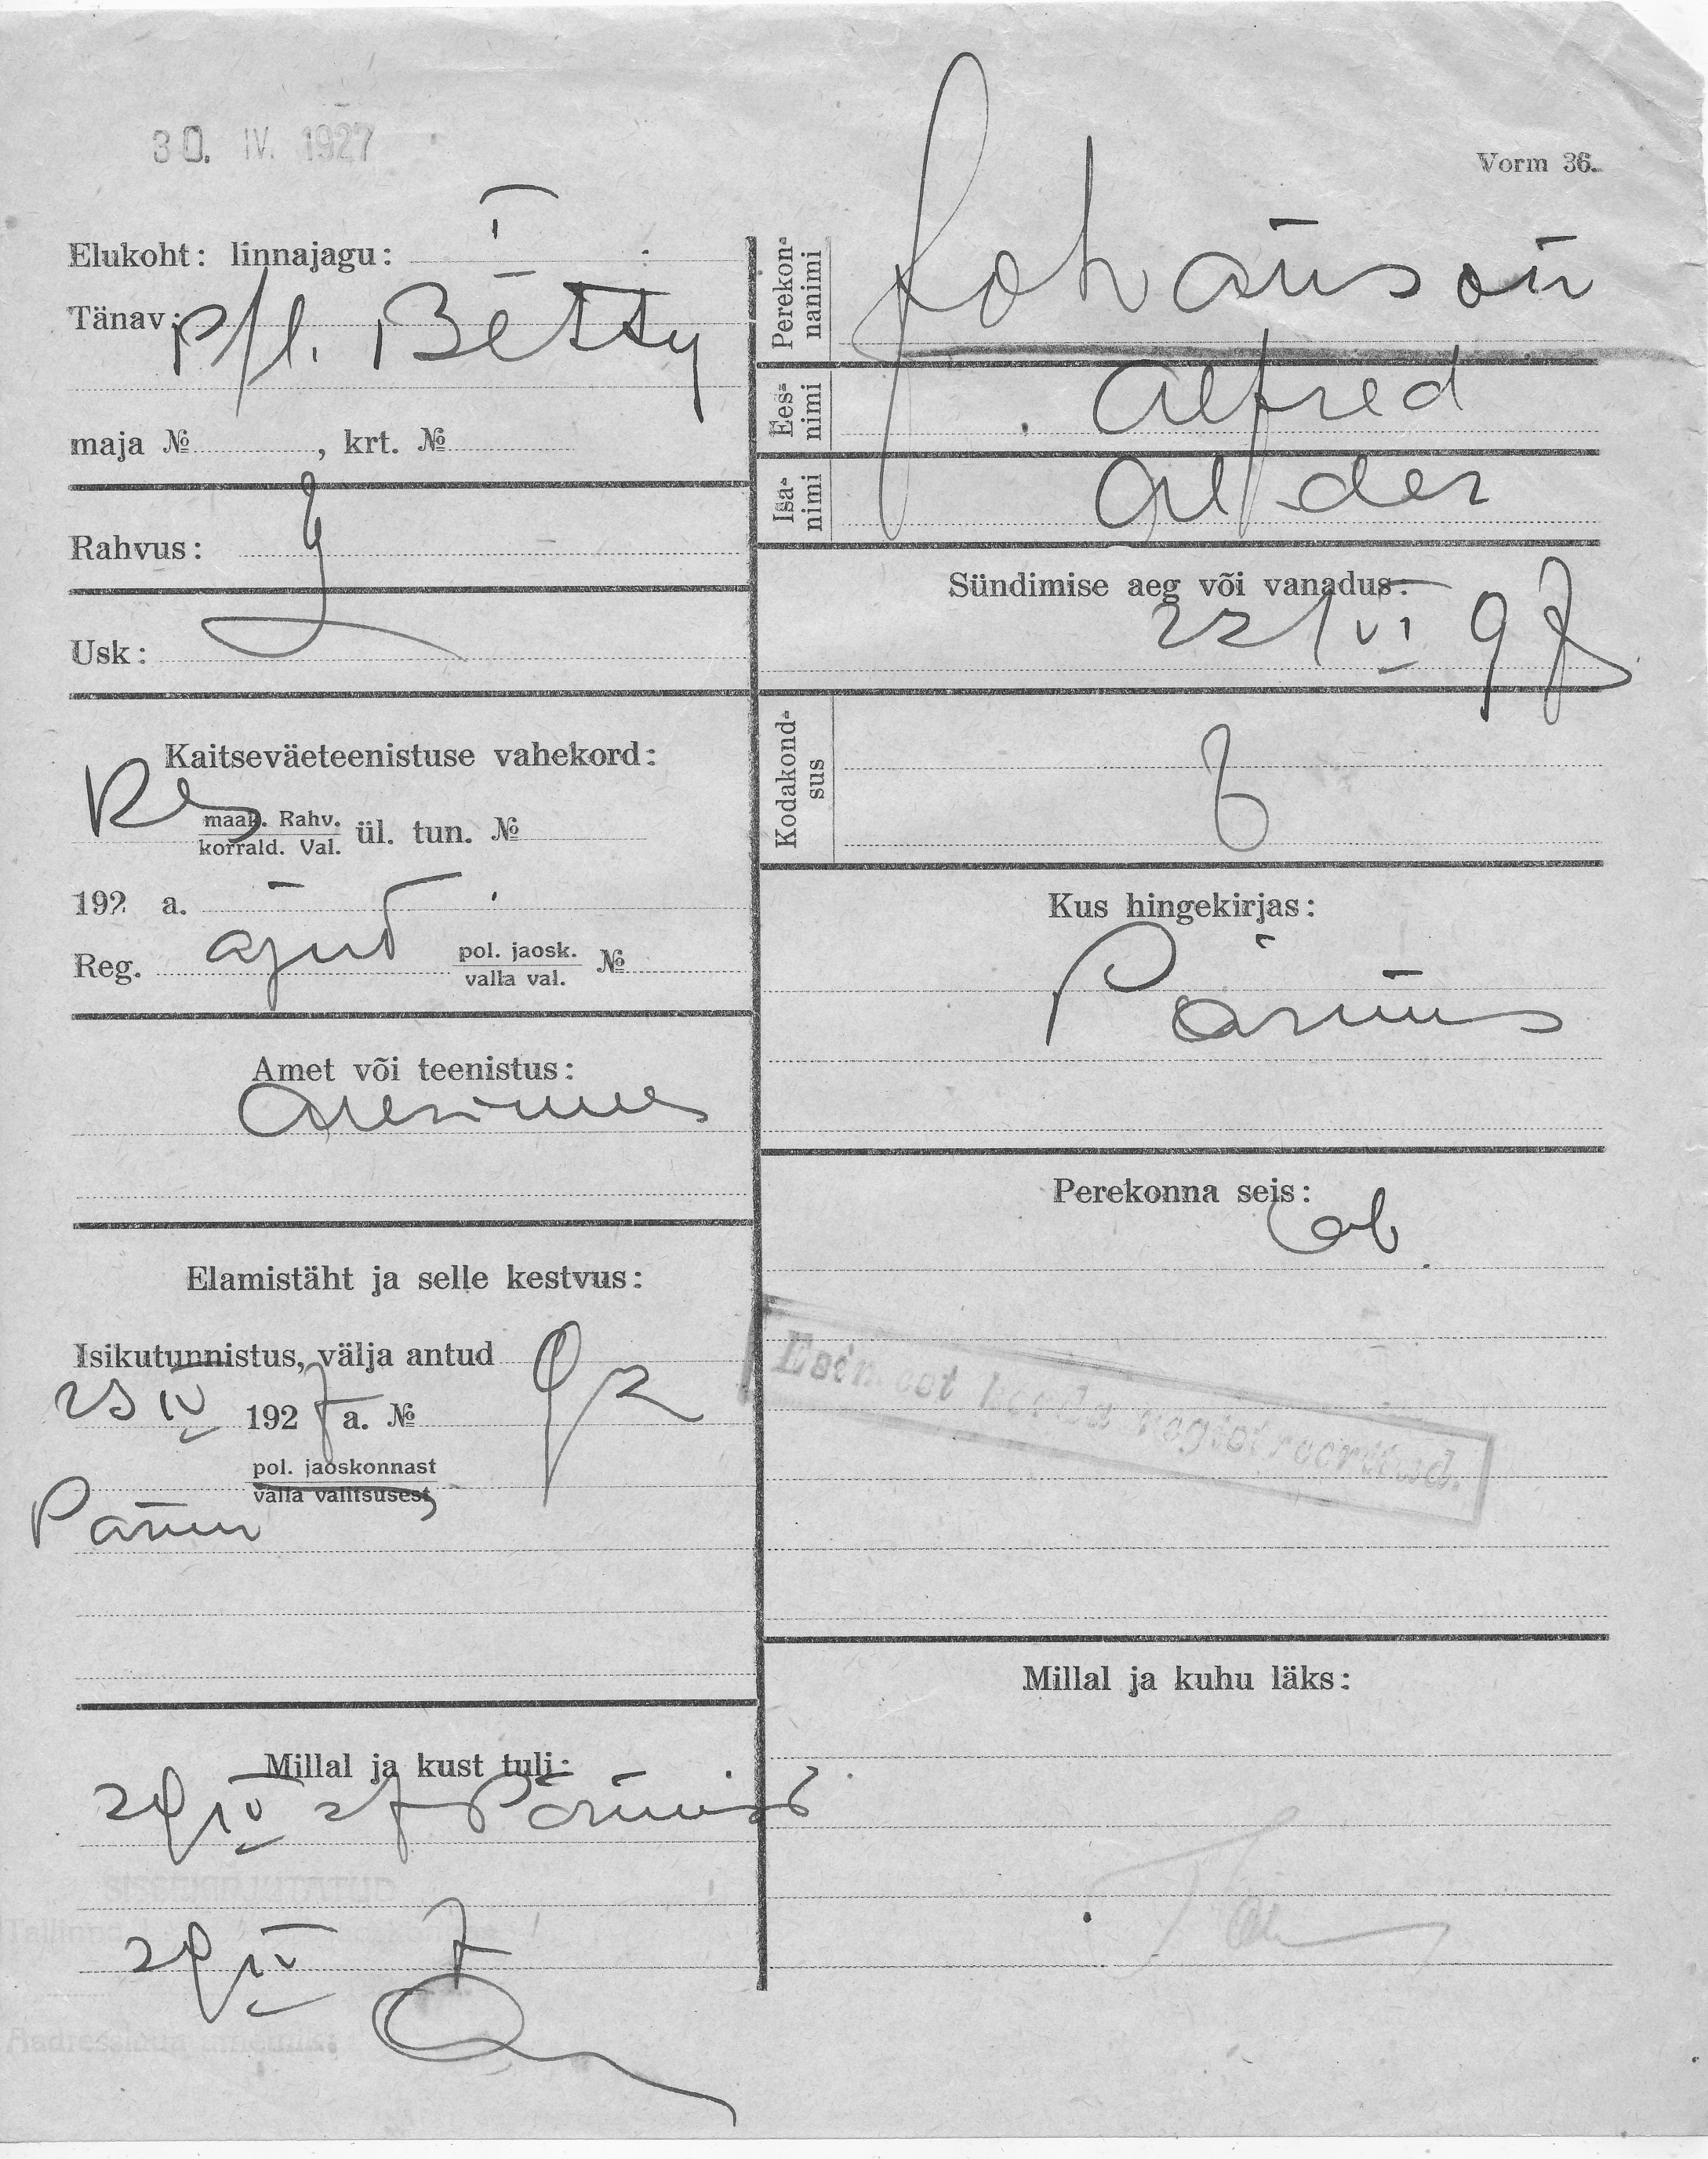 30. IV. 1927
Vorm 36.
Elukoht: linnajagu: I
Tänav: p/l. Betty
maja № , krt. №
Rahvus:
Usk:
Kaitseväeteenistuse vahekord:
Res
maak. Rahv.
korrald. Val.
ül. tun. №
192 a.
Reg. ajut pol. jaosk.
valla val. №
Amet või teenistus:
Meremees
Elamistäht ja selle kestvus:
Isikutunnistus, välja antud
IV 1927 a. №
pol. jaoskonnast
valla valitsusest
Pärnu
Millal ja kust tuli:
29 IV 27 Pärnust
SISSEKIRJUTATUD
Tallinna
29 IV 7
Perekon-
nanimi
Johanson
Ees-
nimi
Alfred
Isa-
nimi
Sündimise aeg või vanadus:
22/VI 97
Kodakond-
sus
Kus hingekirjas:
Pärnus
Perekonna seis:
Esimest korda registreeritud.
Millal ja kuhu läks: